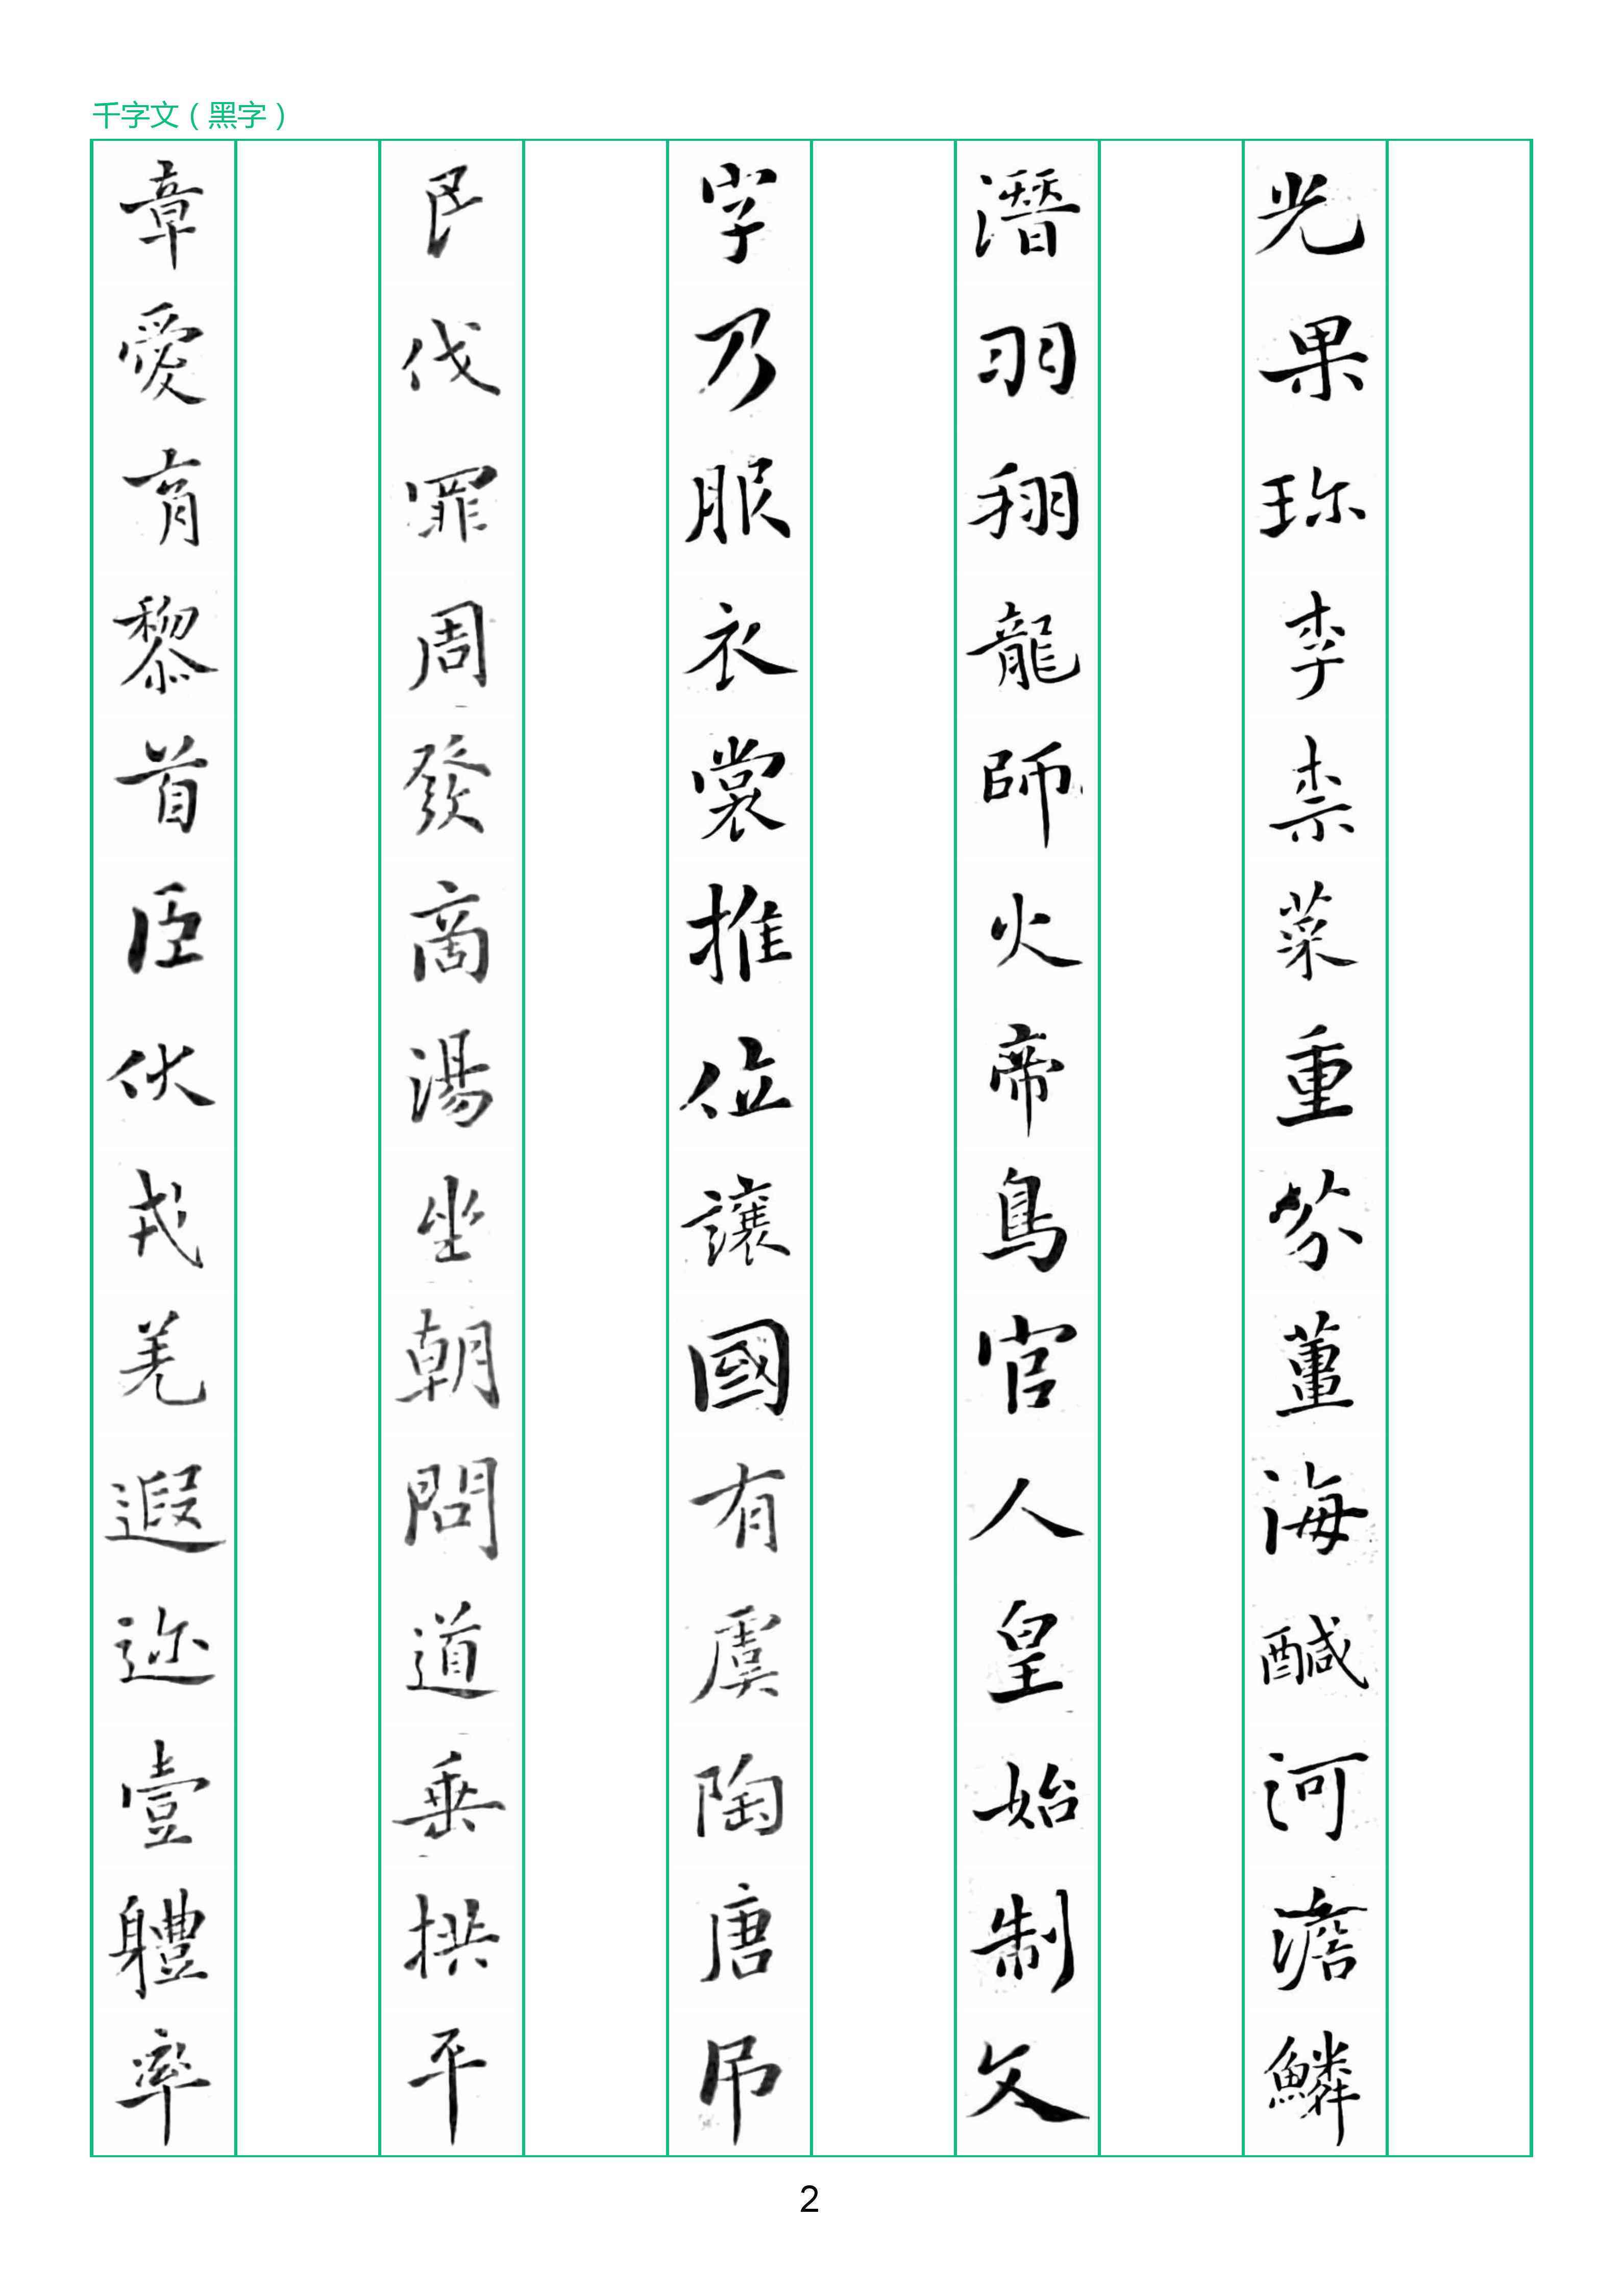 千字文（黑字）
光果珎李柰菜重芥薑海醎河澹鱗
潛羽翔龍師火帝鳥官人皇始制文
字乃服衣裳推位讓國有虞陶唐弔
民伐罪周發商湯坐朝問道垂拱平
章愛育黎首臣伏戎羌遐迩壹軆率
2